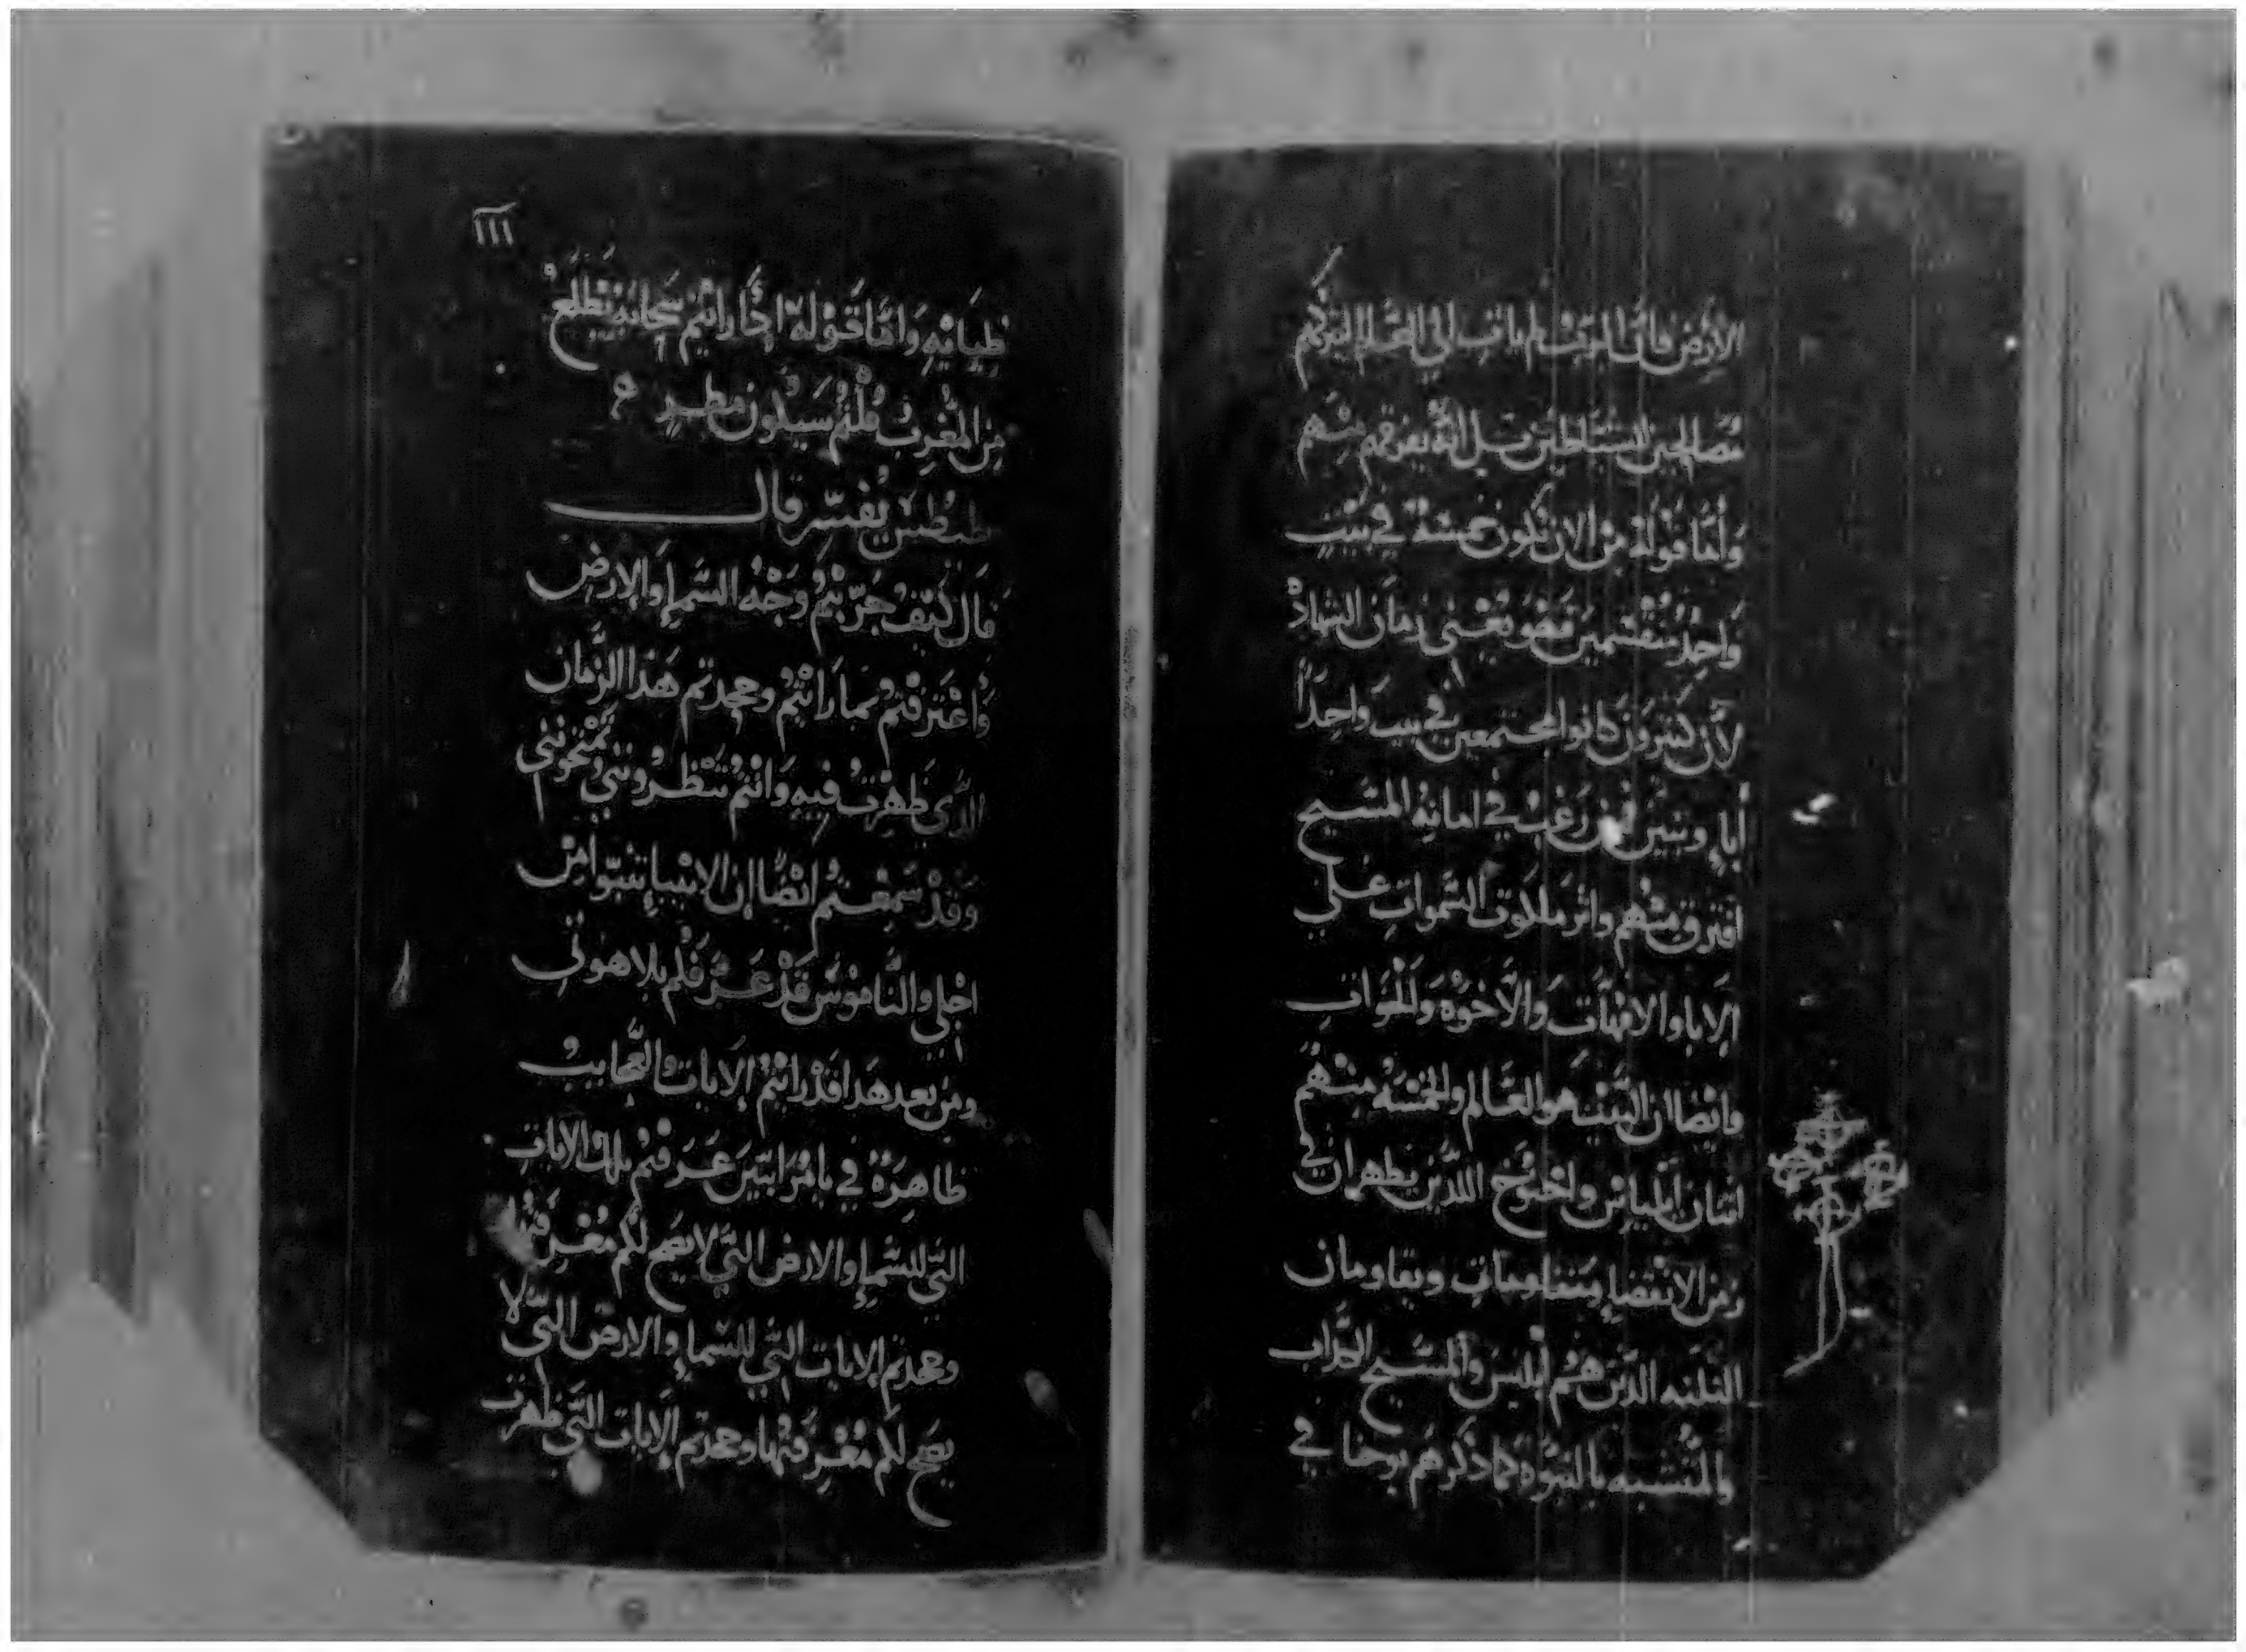 الارض فان لم يات الي العالم ليترككم
مصالحين الشياطين بل انه يفرقكم منهم
واما قوله من الان تكون خمسة في بيت
واحد منقسمين فهو يعني زمان الشهادة
لان كثيرون كانوا مجتمعين في بيت واحدا
اباء وبنين فمن رغب في امانة المسيح
افترق منهم واثر ملكوت السموات علي
الابا والامهات والاخوه والخوات
وايضا ان البيت هو العالم والخمسه منهم
اثنان الياس واخنوخ اللذين يظهران في
زمن الانقضاء ويقاومان
الثلثه الذين هم ابليس والمسيح الكداب
والمتشبه بالنبوه كما ذكرهم يوحنا في
١١١
طيانيه واما قوله اذا رايتم سحابة تطلع
من المغرب قلتم سيكون مطر
طيطس يفسر قال
قال كيف جربتم وجه السماء والارض
واعترفتم بما رايتم وجحدتم هذا الزمان
الذي ظهرت فيه وانتم تنظروني وتمتحنوني
وقد سمعتم ايضا ان الانبياء تنبوا من
اجلي والناموس قد عرفكم بلاهوتي
ومن بعد هذا قد رايتم الايات والعجايب
ظاهرة في يامرايين عرفتم تلك الايات
التي للسماء والارض التي لا يصح لكم معرفتها
وجحدتم الايات التي للسماء والارض التي لا
يصح لكم معرفتها وجحدتم الايات التي ظهرت